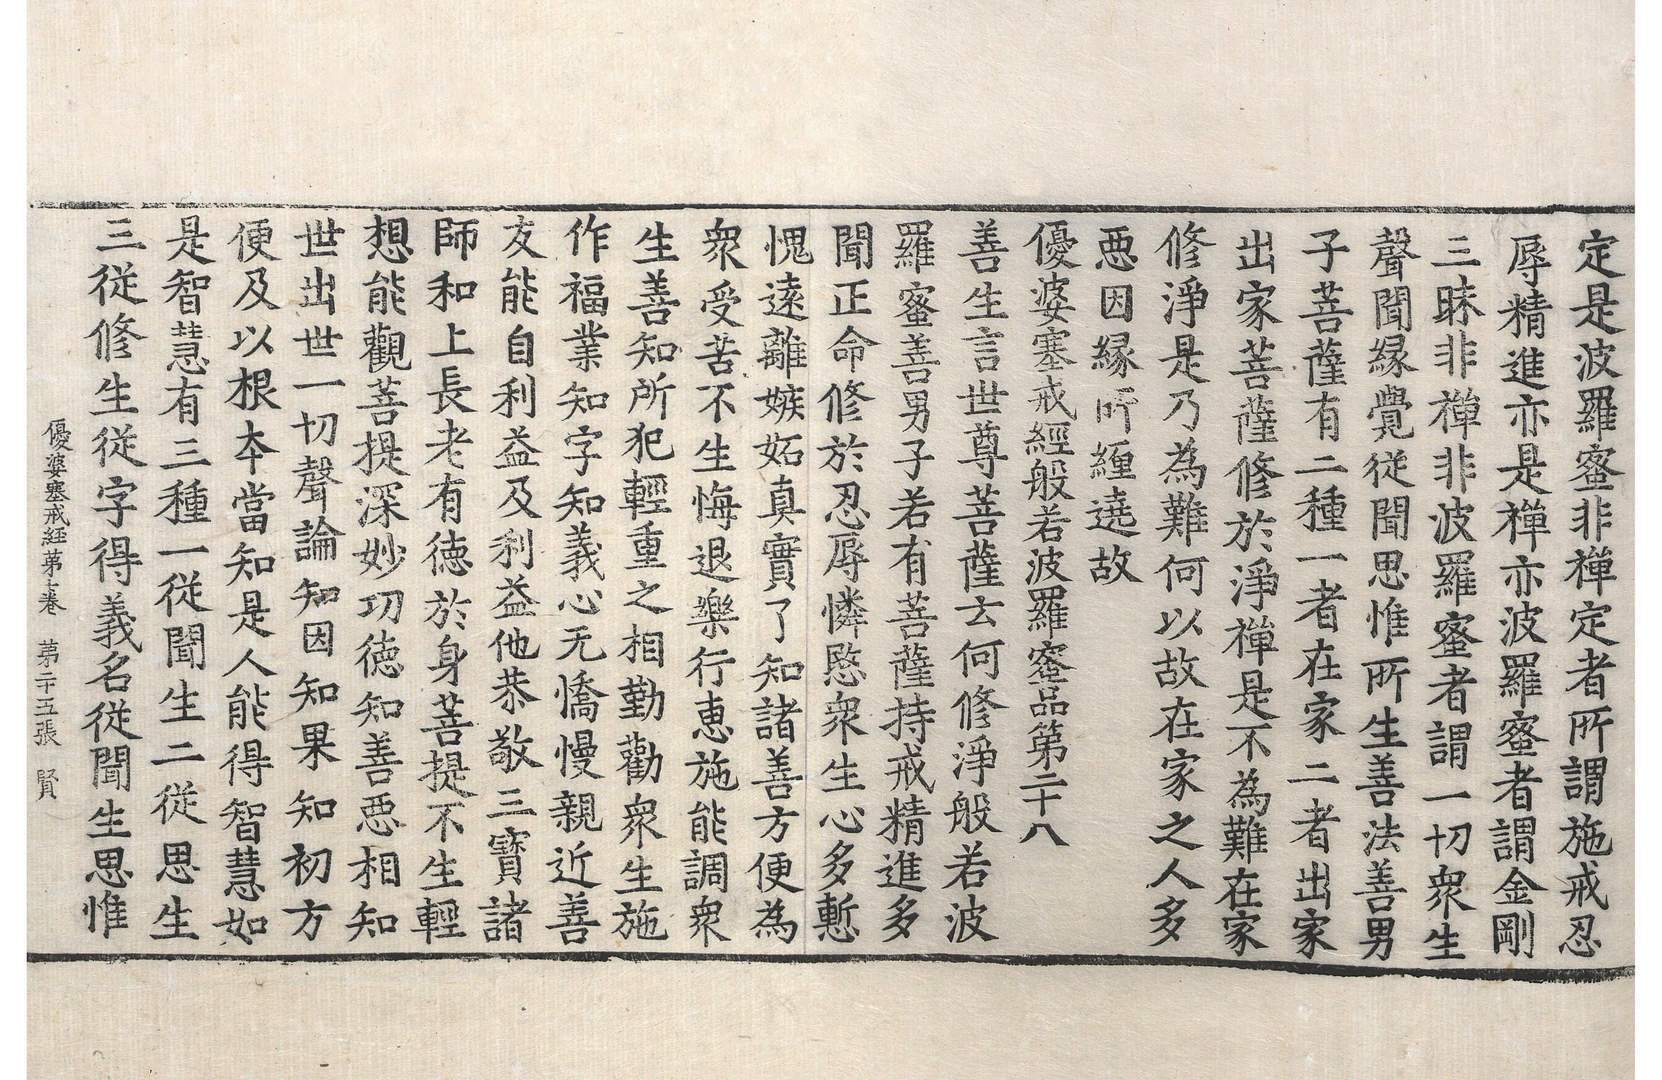 定是波羅蜜非禪定者所謂施戒忍
辱精進亦是禪亦波羅蜜者謂金剛
三昧非禪非波羅蜜者謂一切衆生
聲聞緣覺從聞思惟所生善法善男
子菩薩有二種一者在家二者出家
出家菩薩修於淨禪是不為難在家
修淨是乃為難何以故在家之人多
惡因緣所纏遶故
優婆塞戒經般若波羅蜜品第二十八
善生言世尊菩薩云何修淨般若波
羅蜜善男子若有菩薩持戒精進多
聞正命修於忍辱憐愍衆生心多慙
愧遠離嫉妬真實了知諸善方便為
衆受苦不生悔退樂行惠施能調衆
生善知所犯輕重之相勤勸衆生施
作福業知字知義心无憍慢親近善
友能自利益及利益他恭敬三寶諸
師和上長老有德於身菩提不生輕
想能觀菩提深妙功德知善惡相知
世出世一切聲論知因知果知初方
便及以根本當知是人能得智慧如
是智慧有三種一從聞生二從思生
三從修生從字得義名從聞生思惟
優婆塞戒経苐七巻 苐二十五張 賢